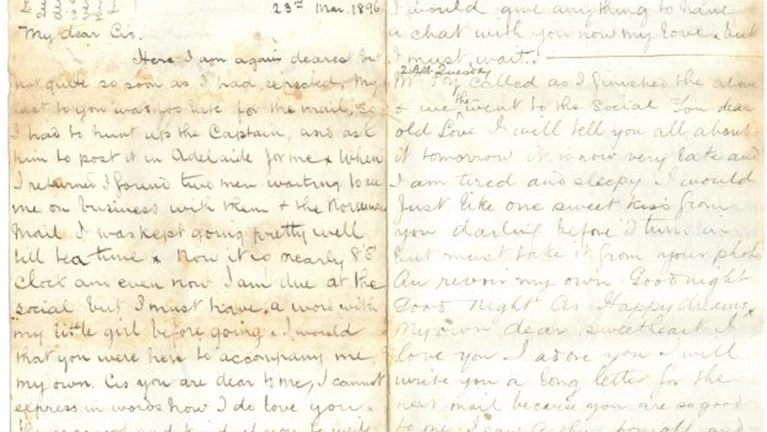 23rd Mar. 1896
My dear Cis.
Here I am again dearest but
not quite so soon as I had expected, My
last to you was too late for the mail, so
I had to hunt up the Captain, and ask
him to post it in Adelaide for me & when
I returned I found two men waiting to see
me on business with them & the
Mail I was kept going pretty well
till tea time & now it is nearly 8 O'
Clock and even now I am due at the
social but I must have a word with
my little girl before going & I would
that you were here to accompany me
my own Cis you are dear to me, I cannot
express in words how I do love you.
I would give anything to have
a chat with you now my Love. but
I must wait.
2 A.M. Tuesday
Mr called as I finished the above
& we then went to the Social You dear
old Love I will tell you all about
it tomorrow it is now very late and
I am tired and sleepy & I would
Just like one sweet kiss from
you darling before I turn in
but must take it from your photo
Au revoir my own Goodnight
Good Night Cis Happy dreams
My own dear sweetheart I
love you I adore you & will
write you a long letter for the
next mail because you are so good
to me I saw Arthur tonight and